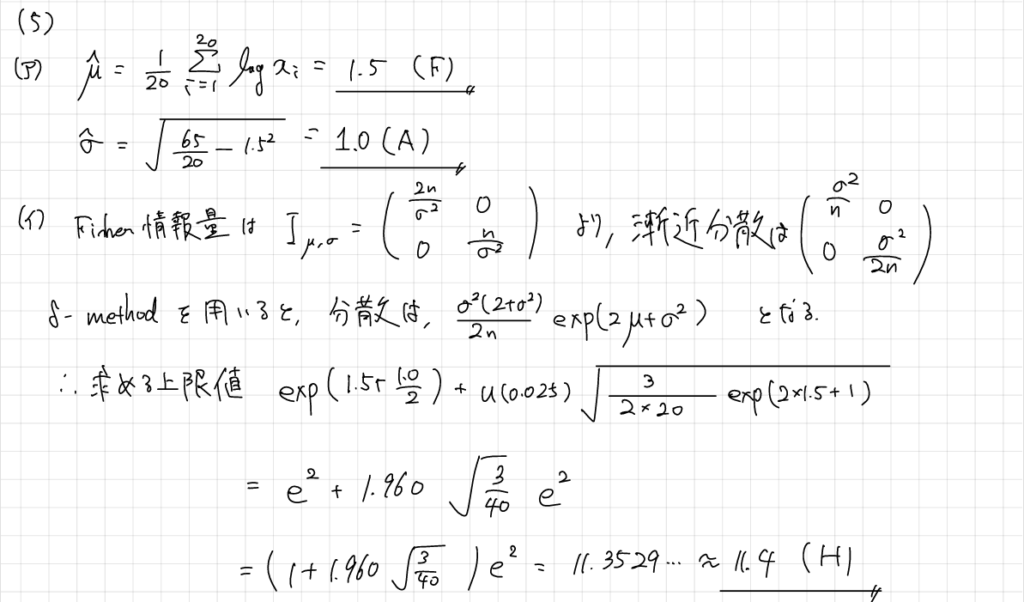 (5)
(ア) μ̂ = 1/20 Σ_{i=1}^{20} log x_i = 1.5 (F)
σ̂ = √(65/20 − 1.5²) = 1.0 (A)
(イ) Fisher 情報量は I_{μ,σ} = ( 2n/σ² 0 ; 0 n/σ² ) より, 漸近分散は ( σ²/n 0 ; 0 σ²/2n )
δ-method を用いると, 分散は, σ²(2+σ²)/2n exp(2μ+σ²) となる.
∴ 求める上限値 exp(1.5+ 1.0/2) + u(0.025) √(3/(2×20) exp(2×1.5+1))
= e² + 1.960 √(3/40) e²
= (1+1.960 √(3/40)) e² = 11.3529… ≈ 11.4 (H)